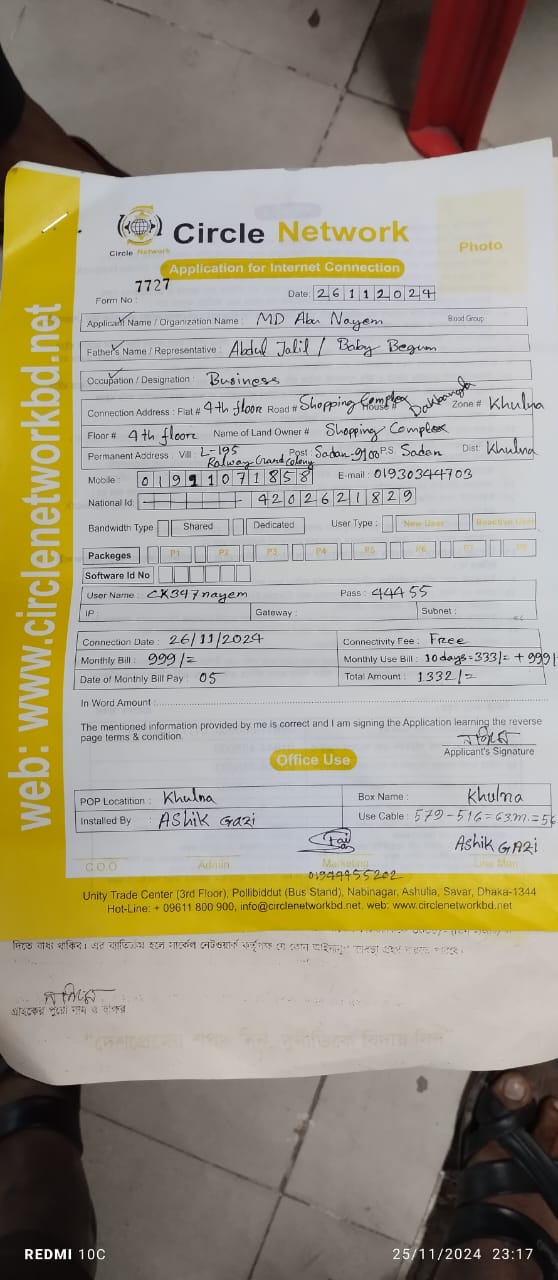 Circle Network
Circle Network
Photo
Application for Internet Connection
Form No : 7727
Date: 26112024
Applicant Name / Organization Name : MD Abu Nayem Blood Group
Father's Name / Representative : Abdul Jalil / Baby Begum
Occupation / Designation : Business
Connection Address : Flat # 4th floor Road # Shopping Complex House # Dakbangla Zone # Khulna
Floor # 4th floor Name of Land Owner # Shopping Complex
Permanent Address : Vill : L-195 Railway Grand Colony Post : Sadar-9100 P.S Sadar Dist: Khulna
Mobile : 01911071858 E-mail : 01930344703
National Id: 4202621829
Bandwidth Type Shared Dedicated User Type : New User Reactive User
Packeges P1 P2 P3 P4 P5 P6 P7 P8
Software Id No
User Name : CK347nayem Pass : 44455
IP : Gateway : Subnet :
Connection Date : 26/11/2024 Connectivity Fee : Free
Monthly Bill : 999/= Monthly Use Bill : 10 days=333/= + 999/
Date of Monthly Bill Pay : 05 Total Amount : 1332/=
In Word Amount :
The mentioned information provided by me is correct and I am signing the Application learning the reverse
page terms & condition.
নাঈম
Applicant's Signature
Office Use
POP Locatition : Khulna Box Name : Khulna
Installed By : Ashik Gazi Use Cable : 579-516=63m.=56
Ashik GAZI
C.O.O Admin Marketing Line Man
01944455202
Unity Trade Center (3rd Floor), Pollibiddut (Bus Stand), Nabinagar, Ashulia, Savar, Dhaka-1344
Hot-Line: + 09611 800 900, info@circlenetworkbd.net, web: www.circlenetworkbd.net
web: www.circlenetworkbd.net
দিতে বাধ্য থাকিব। এর ব্যতিক্রম হলে সার্কেল নেটওয়ার্ক কর্তৃপক্ষ যে কোন আইনানুগ ব্যবস্থা গ্রহণ করতে পারবে।
নাঈম
গ্রাহকের পুরো নাম ও স্বাক্ষর
REDMI 10C
25/11/2024 23:17